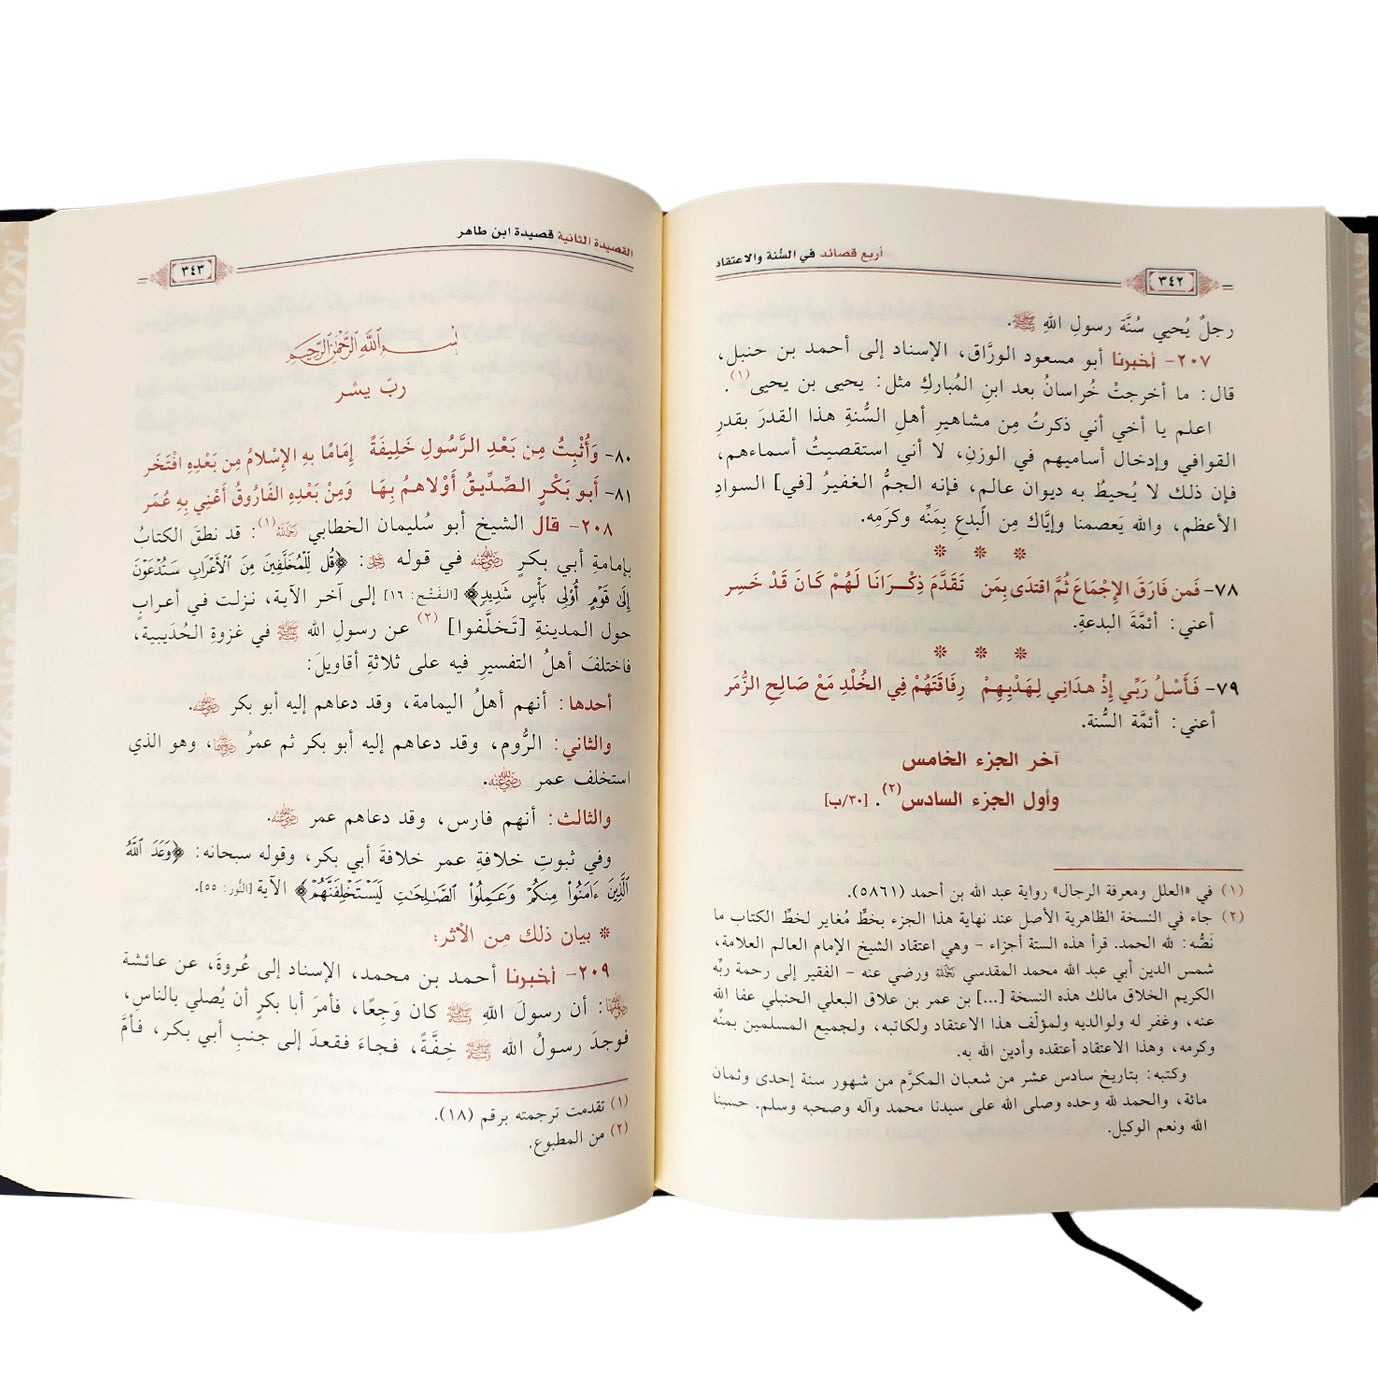 أربع قصائد في السُّنة والاعتقاد
٣٤٢
رجلٌ يُحيي سُنَّة رسولِ اللهِ ﷺ.
٢٠٧- أخبرنا أبو مسعود الورَّاق، الإسناد إلى أحمد بن حنبل،
قال: ما أخرجتْ خُراسانُ بعد ابنِ المُباركِ مثل: يحيى بن يحيى(١).
اعلم يا أخي أني ذكرتُ مِن مشاهيرِ أهلِ السُّنةِ هذا القدرَ بقدرِ
القوافي وإدخال أساميهم في الوزنِ، لا أني استقصيتُ أسماءهم،
فإن ذلك لا يُحيطُ به ديوان عالمٍ، فإنه الجمُّ الغفيرُ [في] السوادِ
الأعظم، والله يَعصمنا وإيَّاك مِن البدعِ بِمَنِّه وكرَمِه.
* * *
٧٨- فَمن فَارَقَ الإِجْمَاعَ ثُمَّ اقتدَى بِمَن تَقَدَّمَ ذِكْرَانَا لَهُمْ كَانَ قَدْ خَسِر
أعني: أئمَّة البدعةِ.
* * *
٧٩- فَأَسْلُ رَبِّي إِذْ هدَانِي لِهَدْيِهِمْ رِفَاقَتَهُمْ فِي الخُلْدِ مَعْ صَالِحِ الزُّمَر
أعني: أئمَّة السُّنة.
آخر الجزء الخامس
وأول الجزء السادس(٢). [٣٠/ب]
(١) في «العلل ومعرفة الرجال» رواية عبد الله بن أحمد (٥٨٦١).
(٢) جاء في النسخة الظاهرية الأصل عند نهاية هذا الجزء بخطٍّ مُغاير لخطِّ الكتاب ما
نَصُّه: لله الحمد. قرأ هذه الستة أجزاء - وهي اعتقاد الشيخ الإمام العالم العلامة،
شمس الدين أبي عبد الله محمد المقدسي رحمه الله ورضي عنه - الفقير إلى رحمة ربِّه
الكريم الخلاق مالك هذه النسخة [...] بن عمر بن علاق البعلي الحنبلي عفا الله
عنه، وغفر له ولوالديه ولمؤلّف هذا الاعتقاد ولكاتبه، ولجميع المسلمين بمنِّه
وكرمه، وهذا الاعتقاد أعتقده وأدين الله به.
وكتبه: بتاريخ سادس عشر من شعبان المكرَّم من شهور سنة إحدى وثمان
مائة، والحمد لله وحده وصلى الله على سيدنا محمد وآله وصحبه وسلم. حسبنا
الله ونعم الوكيل.
القصيدة الثانية قصيدة ابن طاهر
٣٤٣
بسم الله الرحمن الرحيم
ربّ يسِّر
٨٠- وَأُثْبِتُ مِن بَعْدِ الرَّسُولِ خَلِيفَةً إِمَامًا بهِ الإِسْلامُ مِن بَعْدِهِ افْتَخَر
٨١- أَبو بَكْرٍ الصِّدِّيقُ أَوْلاهمُ بِهَا وَمِنْ بَعْدِهِ الفَارُوقُ أَعْنِي بِهِ عُمَر
٢٠٨- قال الشيخ أبو سُليمان الخطابي رحمه الله(١): قد نطقَ الكتابُ
بإمامةِ أبي بكرٍ رضي الله عنه في قوله عز وجل: ﴿قُل لِّلْمُخَلَّفِينَ مِنَ ٱلْأَعْرَابِ سَتُدْعَوْنَ
إِلَىٰ قَوْمٍ أُوْلِى بَأْسٍ شَدِيدٍ﴾ [الفتح: ١٦] إلى آخر الآية، نزلت في أعرابٍ
حول المدينةِ [تَخلَّفوا](٢) عن رسولِ الله ﷺ في غزوةِ الحُدَيبية،
فاختلفَ أهلُ التفسيرِ فيه على ثلاثةِ أقاويلَ:
أحدها: أنهم أهلُ اليمامة، وقد دعاهم إليه أبو بكر رضي الله عنه.
والثاني: الرُّوم، وقد دعاهم إليه أبو بكر ثم عمرُ رضي الله عنهما، وهو الذي
استخلف عمر رضي الله عنه.
والثالث: أنهم فارس، وقد دعاهم عمر رضي الله عنه.
وفي ثبوتِ خلافةِ عمر خلافةَ أبي بكر، وقوله سبحانه: ﴿وَعَدَ ٱللَّهُ
ٱلَّذِينَ ءَامَنُواْ مِنكُمْ وَعَمِلُواْ ٱلصَّٰلِحَٰتِ لَيَسْتَخْلِفَنَّهُمْ﴾ الآية [النُّور: ٥٥].
* بيان ذلك من الأثر:
٢٠٩- أخبرنا أحمد بن محمد، الإسناد إلى عُروةَ، عن عائشة
رضي الله عنها: أن رسولَ اللهِ ﷺ كان وَجِعًا، فأمرَ أبا بكرٍ أن يُصلي بالناسِ،
فوجدَ رسولُ الله ﷺ خِفَّةً، فجاءَ فقعدَ إلى جنبِ أبي بكر، فأمَّ
(١) تقدمت ترجمته برقم (١٨).
(٢) من المطبوع.